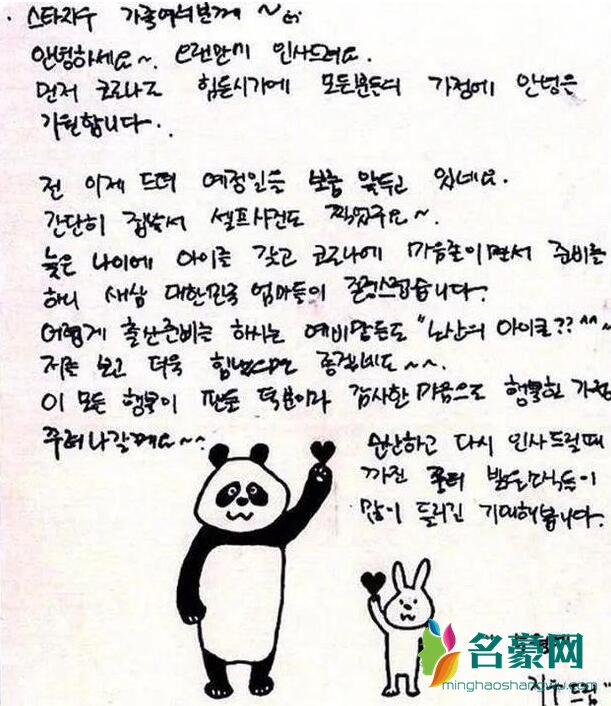 스타자우 가족여러분께 ~
안녕하세요~. 오랜만에 인사드려요.
먼저 코로나로 힘든시기에 모든분들의 가정에 안녕을
기원합니다..
전 이제 드뎌 예정일을 보름 앞두고 있네요.
간단히 집에서 셀프사진도 찍었구요~.
늦은 나이에 아이를 갖고 코로나에 마음졸이면서 준비를
하니 새삼 대한민국 엄마들이 존경스럽습니다.
어렵게 출산준비를 하시는 예비맘들도 "노산의 아이콘?? ^^~
저를 보고 더욱 힘냈으면 좋겠네요~~.
이 모든 행복이 팬들 덕분이라 감사한 마음으로 행복한 가정
꾸려나갈께요~~.
순산하고 다시 인사드릴때
까진 밝은소식들이
많이 들리길 기대해봅니다.
지우 드림"
名豪网
minghaoshangwu.com